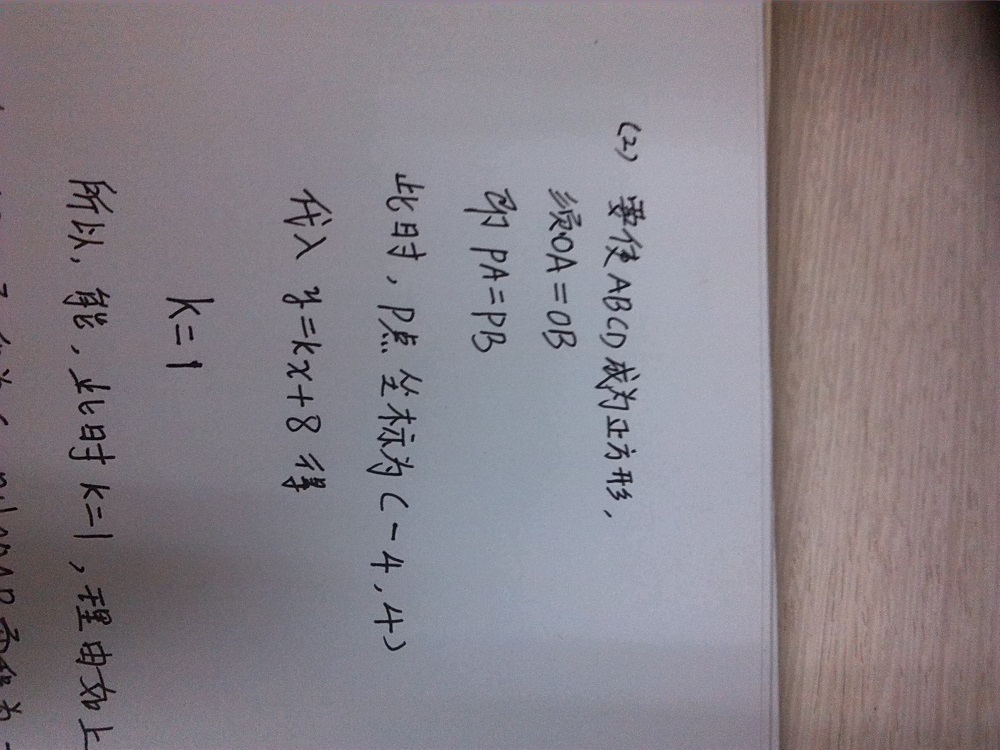 (2) 要使ABCD成为正方形,
须OA=OB
即PA=PB
此时,P点坐标为(-4,4)
代入 y=kx+8 得
k=1
所以,能,此时k=1,理由如上